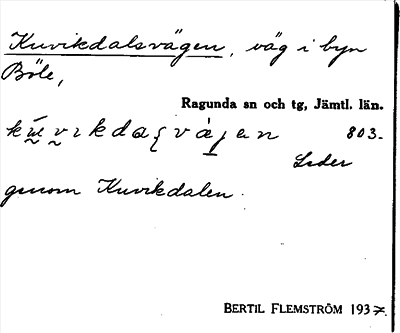 Kuvikdalsvägen, väg i byn
Böle,
Ragunda sn och tg, Jämtl. län.
803.
Leder
genom Kuvikdalen.
BERTIL FLEMSTRÖM 1937.